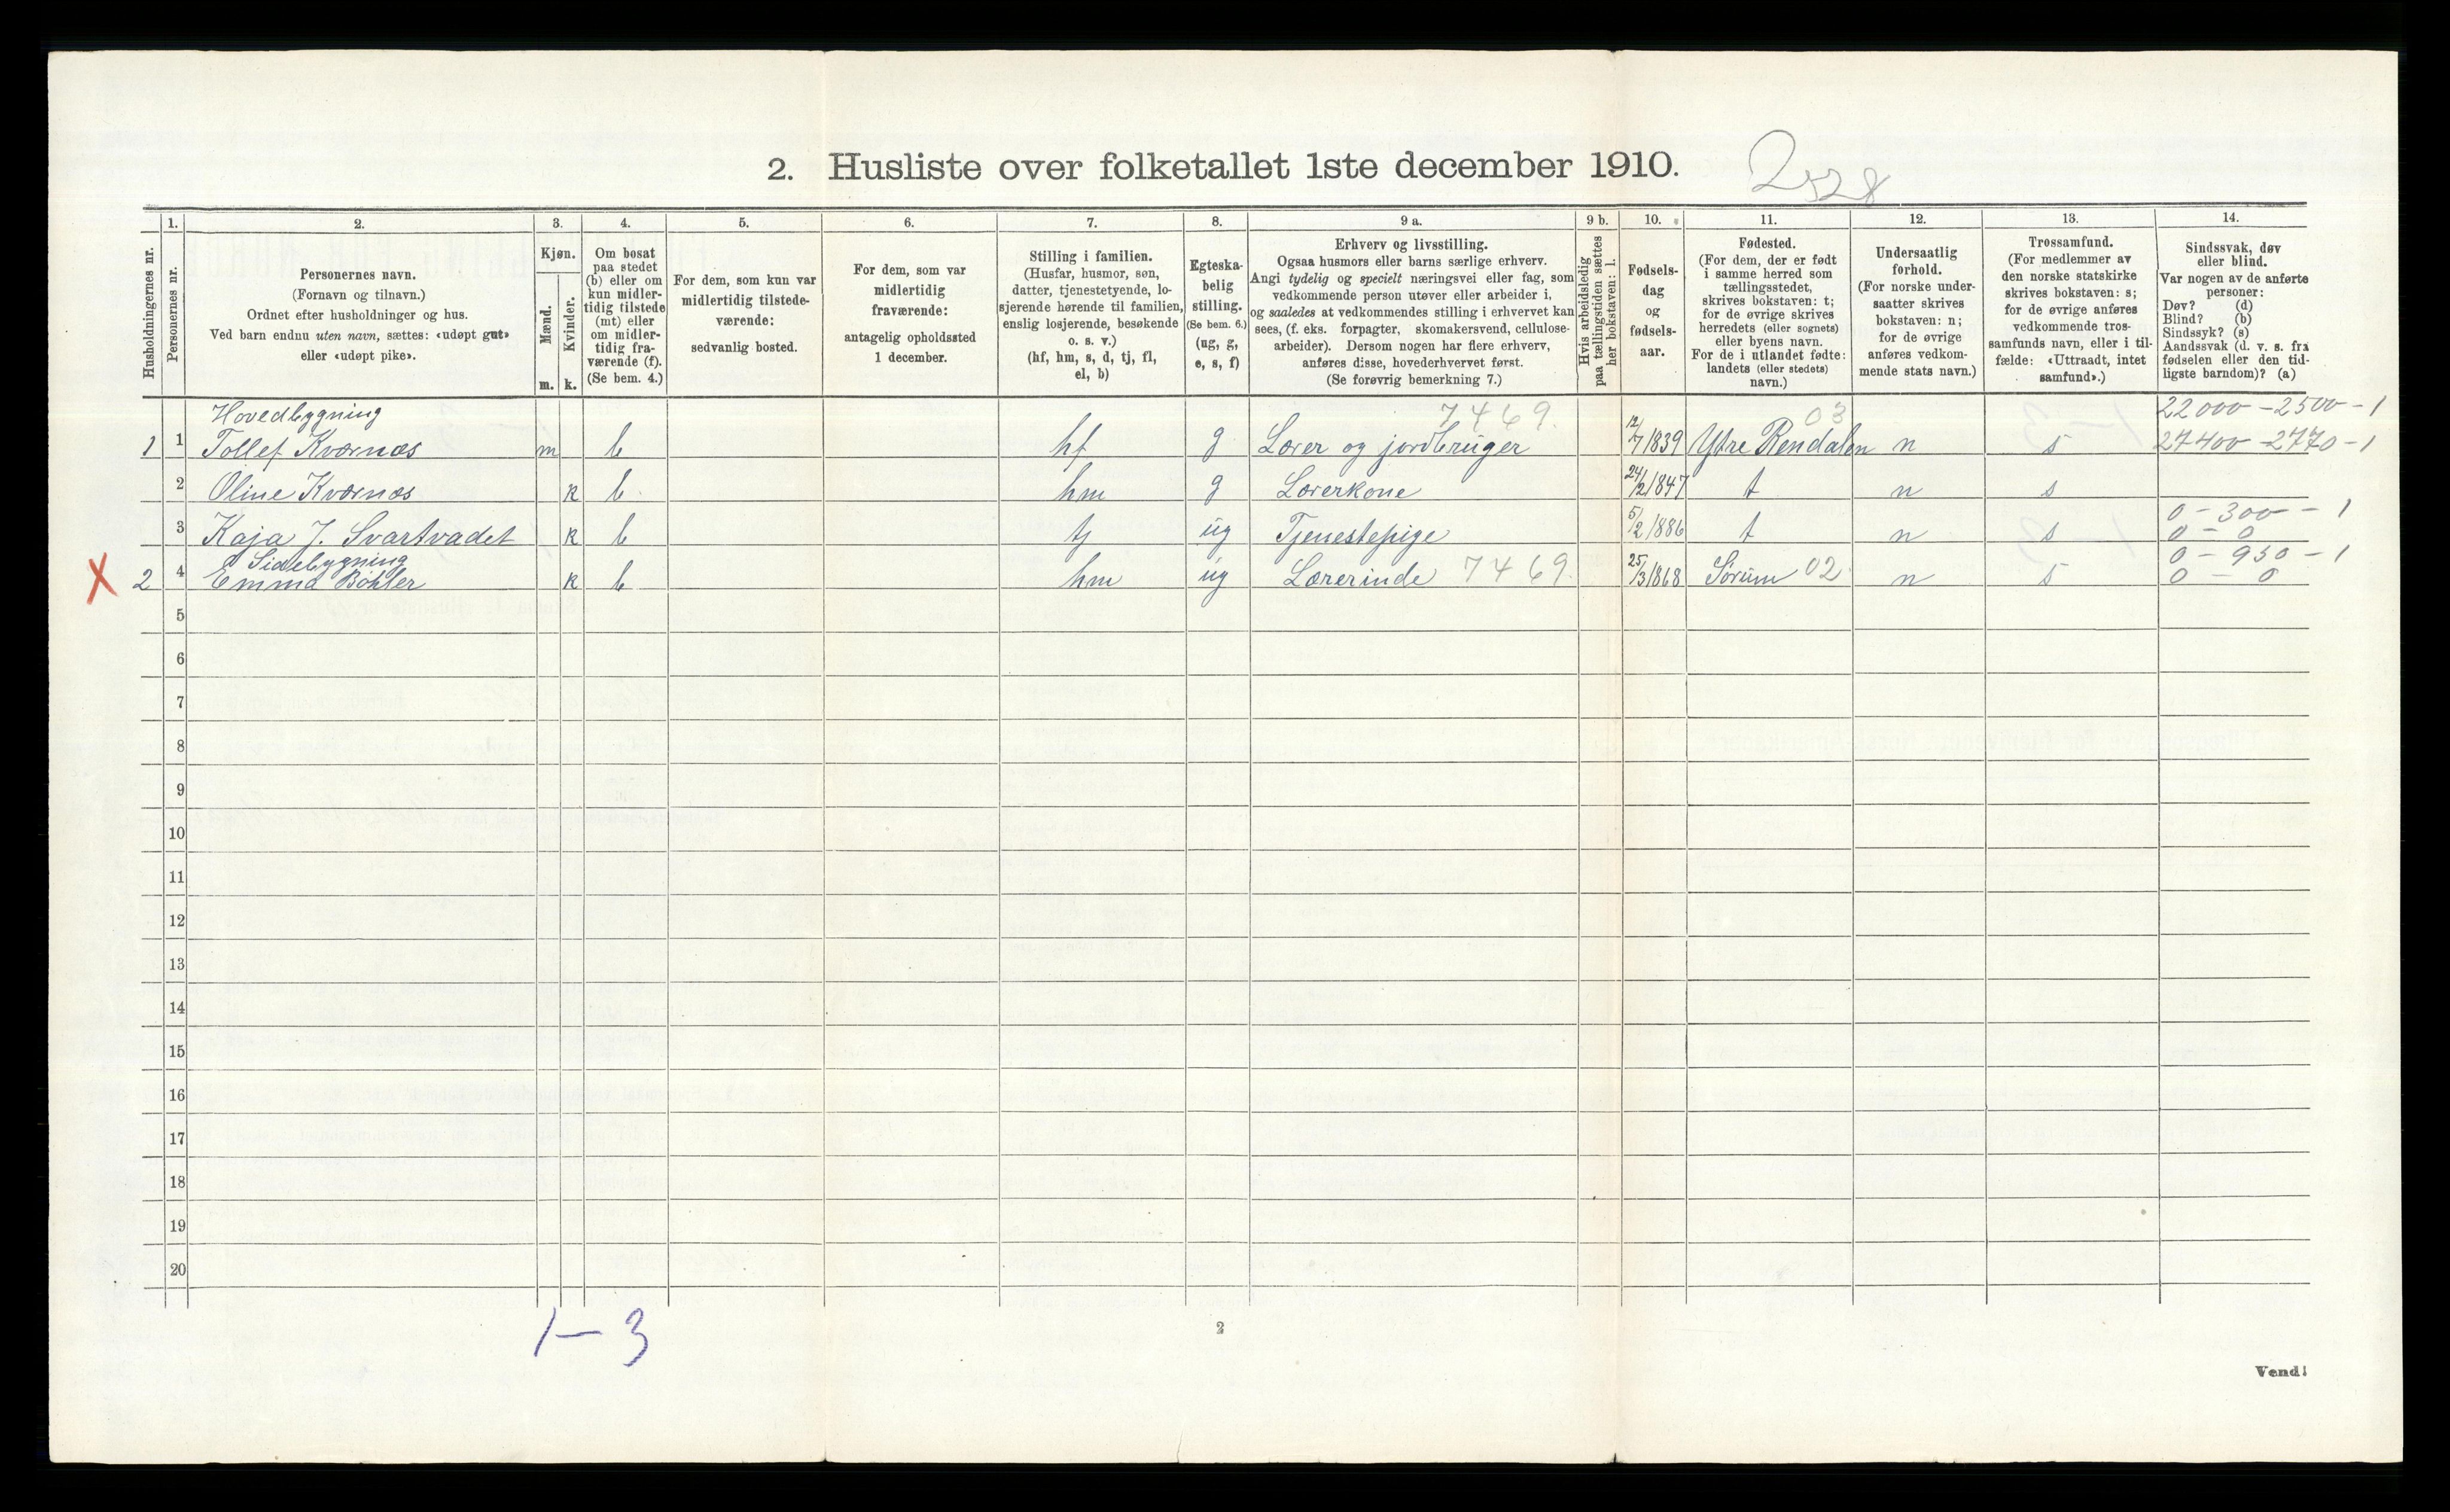 2. Husliste over folketallet 1ste december 1910.
2528
Husholdningernes nr.
1.
Personernes nr.
2.
Personernes navn.
(Fornavn og tilnavn.)
Ordnet efter husholdninger og hus.
Ved barn endnu uten navn, sættes: «udøpt gut»
eller «udøpt pike».
3.
Kjøn.
Mænd.
m.
Kvinder.
k.
4.
Om bosat
paa stedet
(b) eller om
kun midler-
tidig tilstede
(mt) eller
om midler-
tidig fra-
værende (f).
(Se bem. 4.)
5.
For dem, som kun var
midlertidig tilstede-
værende:
sedvanlig bosted.
6.
For dem, som var
midlertidig
fraværende:
antagelig opholdssted
1 december.
7.
Stilling i familien.
(Husfar, husmor, søn,
datter, tjenestetyende, lo-
sjerende hørende til familien,
enslig losjerende, besøkende
o. s. v.)
(hf, hm, s, d, tj, fl,
el, b)
8.
Egteska-
belig
stilling.
(Se bem. 6.)
(ug, g,
e, s, f)
9 a.
Erhverv og livsstilling.
Ogsaa husmors eller barns særlige erhverv.
Angi tydelig og specielt næringsvei eller fag, som
vedkommende person utøver eller arbeider i,
og saaledes at vedkommendes stilling i erhvervet kan
sees, (f. eks. forpagter, skomakersvend, cellulose-
arbeider). Dersom nogen har flere erhverv,
anføres disse, hovederhvervet først.
(Se forøvrig bemerkning 7.)
9 b.
Hvis arbeidsledig
paa tællingstiden sættes
her bokstaven: l.
10.
Fødsels-
dag
og
fødsels-
aar.
11.
Fødested.
(For dem, der er født
i samme herred som
tællingsstedet,
skrives bokstaven: t;
for de øvrige skrives
herredets (eller sognets)
eller byens navn.
For de i utlandet fødte:
landets (eller stedets)
navn.)
12.
Undersaatlig
forhold.
(For norske under-
saatter skrives
bokstaven: n;
for de øvrige
anføres vedkom-
mende stats navn.)
13.
Trossamfund.
(For medlemmer av
den norske statskirke
skrives bokstaven: s;
for de øvrige anføres
vedkommende tros-
samfunds navn, eller i til-
fælde: «Uttraadt, intet
samfund».)
14.
Sindssvak, døv
eller blind.
Var nogen av de anførte
personer:
Døv? (d)
Blind? (b)
Sindssyk? (s)
Aandssvak (d. v. s. fra
fødselen eller den tid-
ligste barndom)? (a)
Hovedbygning 7469. 03 22000 - 2500 - 1
1 1 Tollef Kværnæs m b hf g Lærer og jordbruger 12/7 1839 Ytre Rendalen n s 27400 - 2770 - 1
2 Oline Kværnæs k b hm g Lærerkone 24/2 1847 t n s
0 - 300 - 1
3 Kaja J. Svartvadet k b tj ug Tjenestepige 5/2 1886 t n s 0 - 0
Sidebygning 0 - 950 - 1
X 2 4 Emma Bøhler k b hm ug Lærerinde 7469. 25/3 1868 Sørum 02 n s 0 - 0
5
6
7
8
9
10
11
12
13
14
15
16
17
18
19
20
1 - 3
2
Vend!